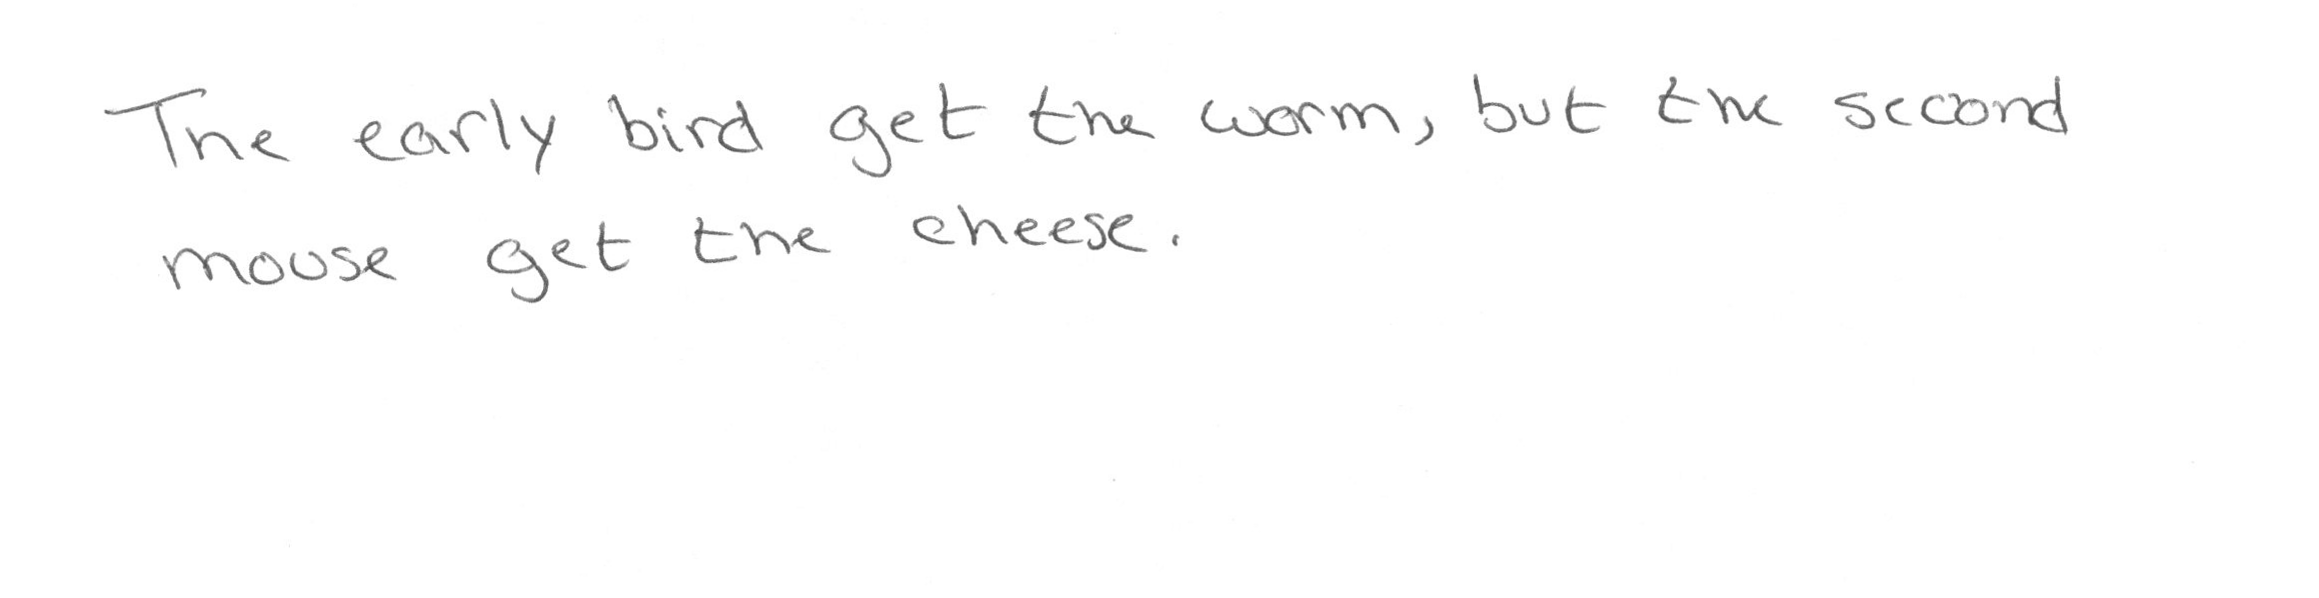 The early bird get the worm, but the second
mouse get the cheese.